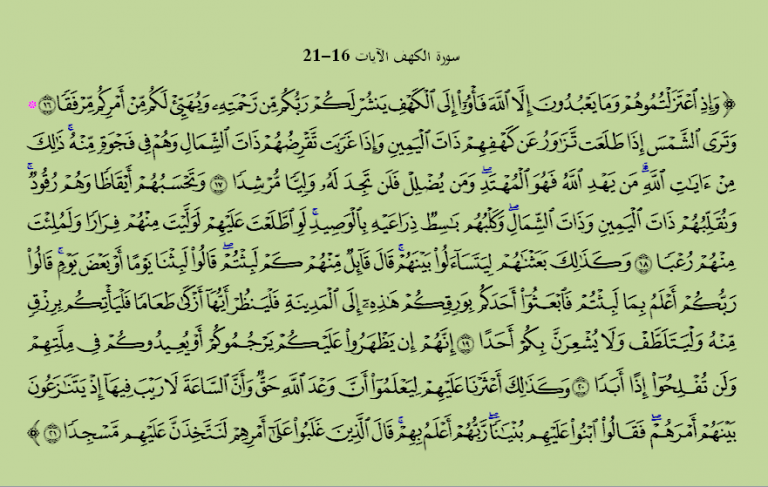 سورة الكهف الآيات 16-21
﴿ وَإِذِ ٱعْتَزَلْتُمُوهُمْ وَمَا يَعْبُدُونَ إِلَّا ٱللَّهَ فَأْوُۥٓا۟ إِلَى ٱلْكَهْفِ يَنشُرْ لَكُمْ رَبُّكُم مِّن رَّحْمَتِهِۦ وَيُهَيِّئْ لَكُم مِّنْ أَمْرِكُم مِّرْفَقًا ١٦ ۞
وَتَرَى ٱلشَّمْسَ إِذَا طَلَعَت تَّزَٰوَرُ عَن كَهْفِهِمْ ذَاتَ ٱلْيَمِينِ وَإِذَا غَرَبَت تَّقْرِضُهُمْ ذَاتَ ٱلشِّمَالِ وَهُمْ فِى فَجْوَةٍ مِّنْهُ ۚ ذَٰلِكَ
مِنْ ءَايَٰتِ ٱللَّهِ ۗ مَن يَهْدِ ٱللَّهُ فَهُوَ ٱلْمُهْتَدِ ۖ وَمَن يُضْلِلْ فَلَن تَجِدَ لَهُۥ وَلِيًّا مُّرْشِدًا ١٧ وَتَحْسَبُهُمْ أَيْقَاظًا وَهُمْ رُقُودٌ ۚ
وَنُقَلِّبُهُمْ ذَاتَ ٱلْيَمِينِ وَذَاتَ ٱلشِّمَالِ ۖ وَكَلْبُهُم بَٰسِطٌ ذِرَاعَيْهِ بِٱلْوَصِيدِ ۚ لَوِ ٱطَّلَعْتَ عَلَيْهِمْ لَوَلَّيْتَ مِنْهُمْ فِرَارًا وَلَمُلِئْتَ
مِنْهُمْ رُعْبًا ١٨ وَكَذَٰلِكَ بَعَثْنَٰهُمْ لِيَتَسَآءَلُوا۟ بَيْنَهُمْ ۚ قَالَ قَآئِلٌ مِّنْهُمْ كَمْ لَبِثْتُمْ ۖ قَالُوا۟ لَبِثْنَا يَوْمًا أَوْ بَعْضَ يَوْمٍ ۚ قَالُوا۟
رَبُّكُمْ أَعْلَمُ بِمَا لَبِثْتُمْ فَٱبْعَثُوٓا۟ أَحَدَكُم بِوَرِقِكُمْ هَٰذِهِۦٓ إِلَى ٱلْمَدِينَةِ فَلْيَنظُرْ أَيُّهَآ أَزْكَىٰ طَعَامًا فَلْيَأْتِكُم بِرِزْقٍ
مِّنْهُ وَلْيَتَلَطَّفْ وَلَا يُشْعِرَنَّ بِكُمْ أَحَدًا ١٩ إِنَّهُمْ إِن يَظْهَرُوا۟ عَلَيْكُمْ يَرْجُمُوكُمْ أَوْ يُعِيدُوكُمْ فِى مِلَّتِهِمْ
وَلَن تُفْلِحُوٓا۟ إِذًا أَبَدًا ٢٠ وَكَذَٰلِكَ أَعْثَرْنَا عَلَيْهِمْ لِيَعْلَمُوٓا۟ أَنَّ وَعْدَ ٱللَّهِ حَقٌّ وَأَنَّ ٱلسَّاعَةَ لَا رَيْبَ فِيهَآ إِذْ يَتَنَٰزَعُونَ
بَيْنَهُمْ أَمْرَهُمْ ۖ فَقَالُوا۟ ٱبْنُوا۟ عَلَيْهِم بُنْيَٰنًا ۖ رَّبُّهُمْ أَعْلَمُ بِهِمْ ۚ قَالَ ٱلَّذِينَ غَلَبُوا۟ عَلَىٰٓ أَمْرِهِمْ لَنَتَّخِذَنَّ عَلَيْهِم مَّسْجِدًا ٢١ ﴾